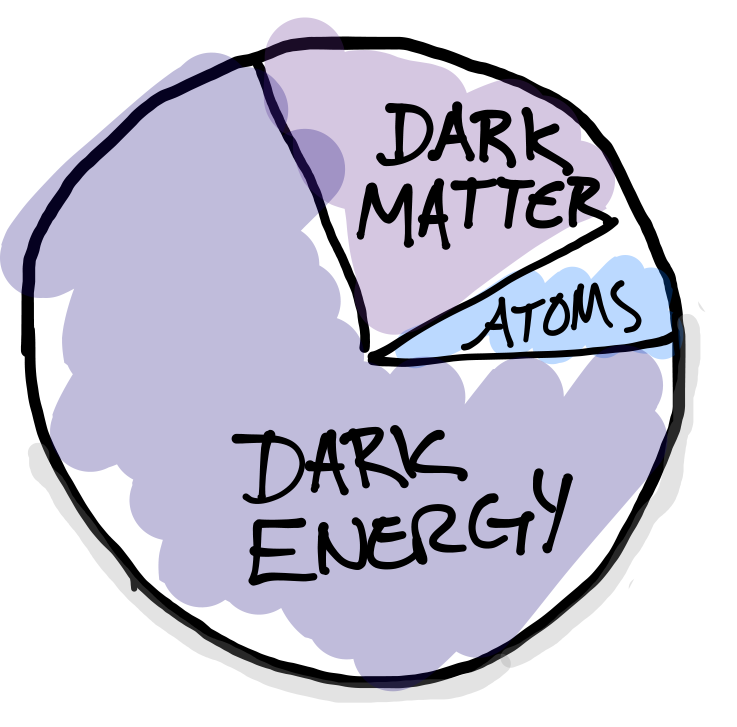 DARK
MATTER
ATOMS
DARK
ENERGY